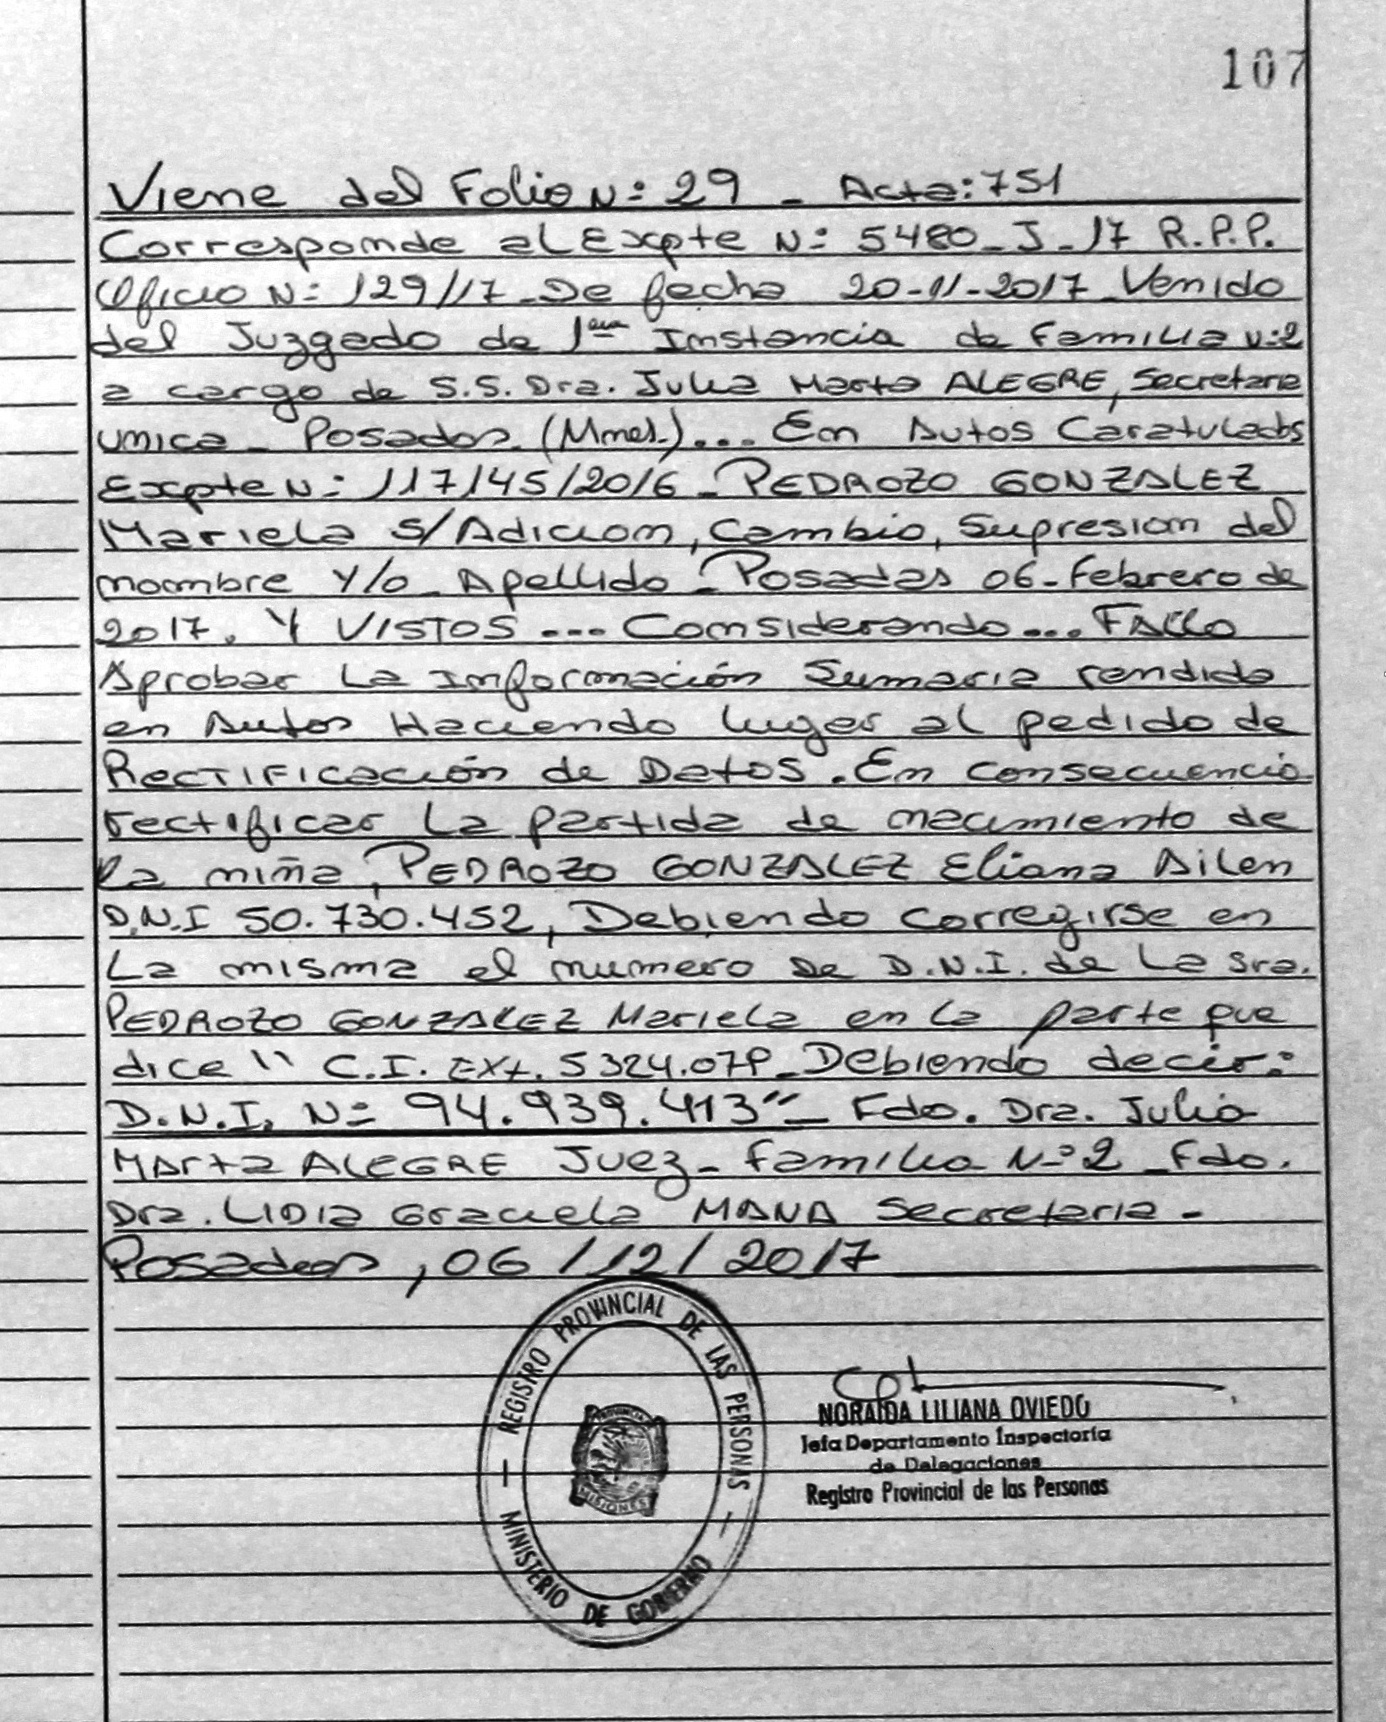 107
Viene del Folio N: 29 _ Acta: 751
Corresponde al Expte N: 5480_J_17 R.P.P.
Oficio N: 129/17_De fecha 20-11-2017_Venido
del Juzgado de 1era Instancia de Familia N:2
a cargo de S.S. Dra. Julia Marta ALEGRE, Secretaria
unica_ Posadas (Mnes.)... En Autos Caratulados
Expte N: 117145/2016_ PEDROZO GONZALEZ
Mariela S/Adicion, Cambio, Supresion del
nombre Y/o_ Apellido_ Posadas 06-Febrero de
2017. Y VISTOS --- Considerando... FALLO
Aprobar La Información Sumaria rendida
en Autos Haciendo lugar al pedido de
Rectificación de Datos. En consecuencia
rectificar La partida de nacimiento de
la niña, PEDROZO GONZALEZ Eliana Ailen
D.N.I 50.730.452, Debiendo corregirse en
La misma el numero de D.N.I. de La Sra.
PEDROZO GONZALEZ Mariela en la parte que
dice " C.I. Ext. 5324.079_ Debiendo decir:
D.N.I. N= 94.939.413"_ Fdo. Dra. Julia
Marta ALEGRE Juez_ Familia N°2_ Fdo.
Dra. LIDIA Graciela MANA Secretaria -
Posadas, 06/12/2017
REGISTRO PROVINCIAL DE LAS PERSONAS
MISIONES
MINISTERIO DE GOBIERNO
NORAIDA LILIANA OVIEDO
Jefa Departamento Inspectoría
de Delegaciones
Registro Provincial de las Personas